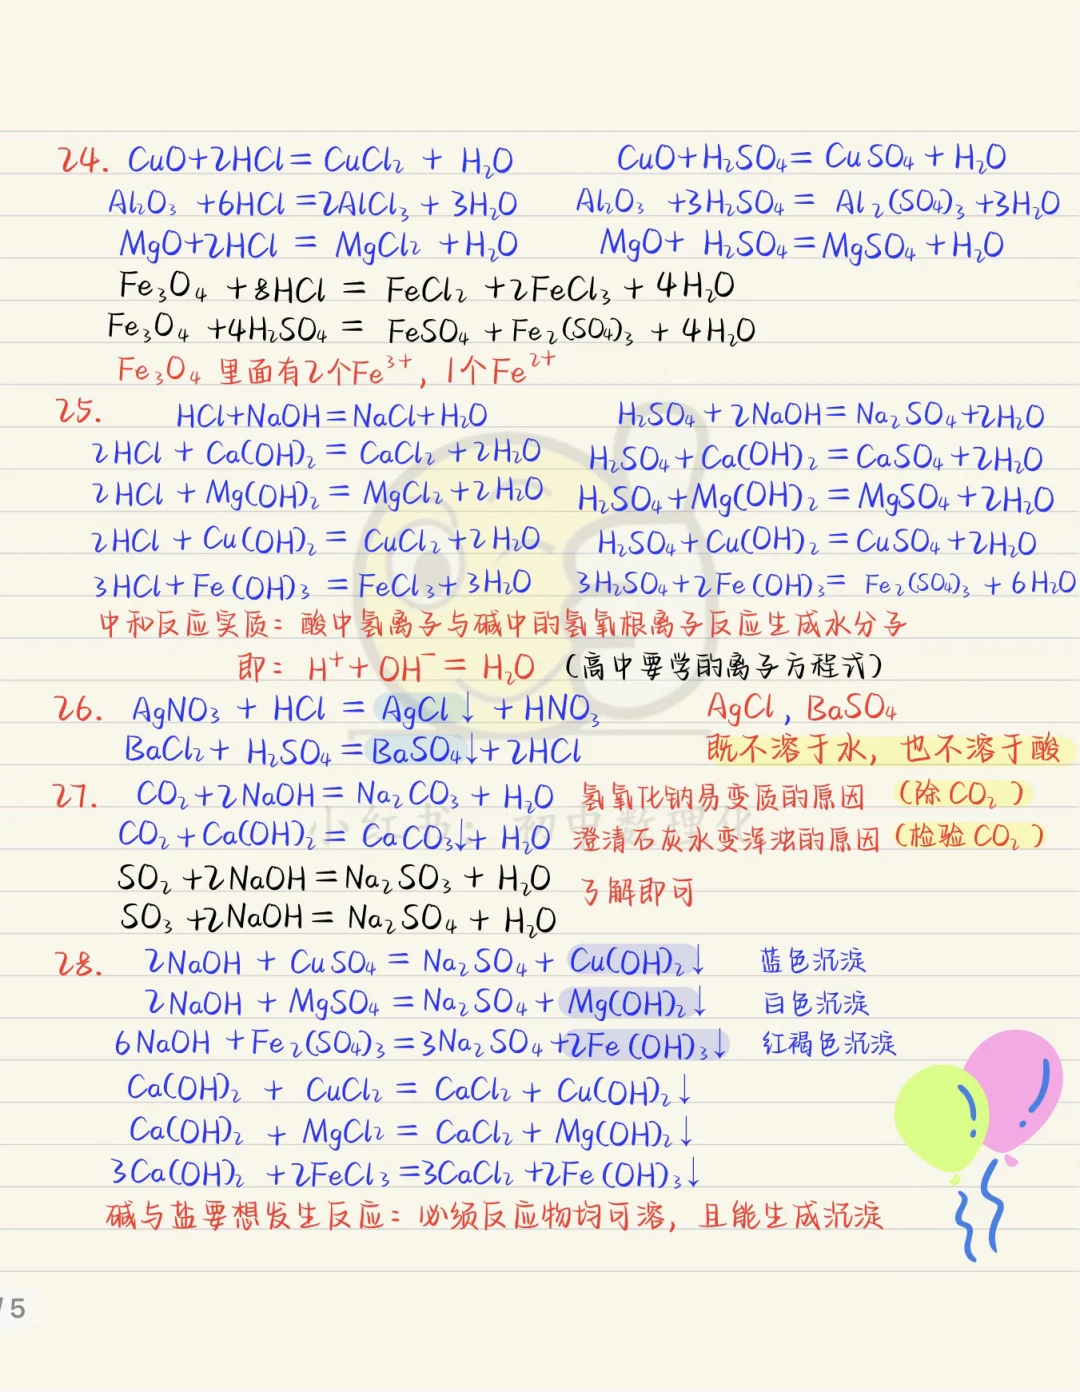 24. CuO+2HCl = CuCl₂ + H₂O CuO+H₂SO₄ = CuSO₄ + H₂O
Al₂O₃ +6HCl =2AlCl₃ + 3H₂O Al₂O₃ +3H₂SO₄ = Al₂(SO₄)₃ +3H₂O
MgO+2HCl = MgCl₂ +H₂O MgO+ H₂SO₄ = MgSO₄ +H₂O
Fe₃O₄ +8HCl = FeCl₂ +2FeCl₃ + 4H₂O
Fe₃O₄ +4H₂SO₄ = FeSO₄ + Fe₂(SO₄)₃ + 4H₂O
Fe₃O₄ 里面有2个Fe³⁺, 1个Fe²⁺
25. HCl+NaOH=NaCl+H₂O H₂SO₄ + 2NaOH= Na₂SO₄+2H₂O
2HCl + Ca(OH)₂ = CaCl₂ +2H₂O H₂SO₄+Ca(OH)₂ =CaSO₄+2H₂O
2HCl + Mg(OH)₂ = MgCl₂+2H₂O H₂SO₄+Mg(OH)₂ =MgSO₄+2H₂O
2HCl + Cu(OH)₂ = CuCl₂+2H₂O H₂SO₄+Cu(OH)₂ =CuSO₄+2H₂O
3HCl+Fe(OH)₃ =FeCl₃+3H₂O 3H₂SO₄+2Fe(OH)₃= Fe₂(SO₄)₃ + 6H₂O
中和反应实质：酸中氢离子与碱中的氢氧根离子反应生成水分子
即：H⁺+OH⁻ = H₂O (高中要学的离子方程式)
26. AgNO₃ + HCl = AgCl↓ + HNO₃ AgCl, BaSO₄
BaCl₂+ H₂SO₄ =BaSO₄↓+2HCl 既不溶于水，也不溶于酸
27. CO₂+2NaOH= Na₂CO₃ + H₂O 氢氧化钠易变质的原因 (除CO₂)
小红书：初中数理化
CO₂+Ca(OH)₂ = CaCO₃↓+ H₂O 澄清石灰水变浑浊的原因 (检验CO₂)
SO₂ +2NaOH=Na₂SO₃ + H₂O 了解即可
SO₃ +2NaOH= Na₂SO₄ + H₂O
28. 2NaOH + CuSO₄ = Na₂SO₄+ Cu(OH)₂↓ 蓝色沉淀
2NaOH + MgSO₄ =Na₂SO₄+ Mg(OH)₂↓ 白色沉淀
6NaOH +Fe₂(SO₄)₃=3Na₂SO₄+2Fe(OH)₃↓ 红褐色沉淀
Ca(OH)₂ + CuCl₂ = CaCl₂ + Cu(OH)₂↓
Ca(OH)₂ + MgCl₂ = CaCl₂ + Mg(OH)₂↓
3Ca(OH)₂ +2FeCl₃=3CaCl₂ +2Fe(OH)₃↓
碱与盐要想发生反应：必须反应物均可溶，且能生成沉淀
/5